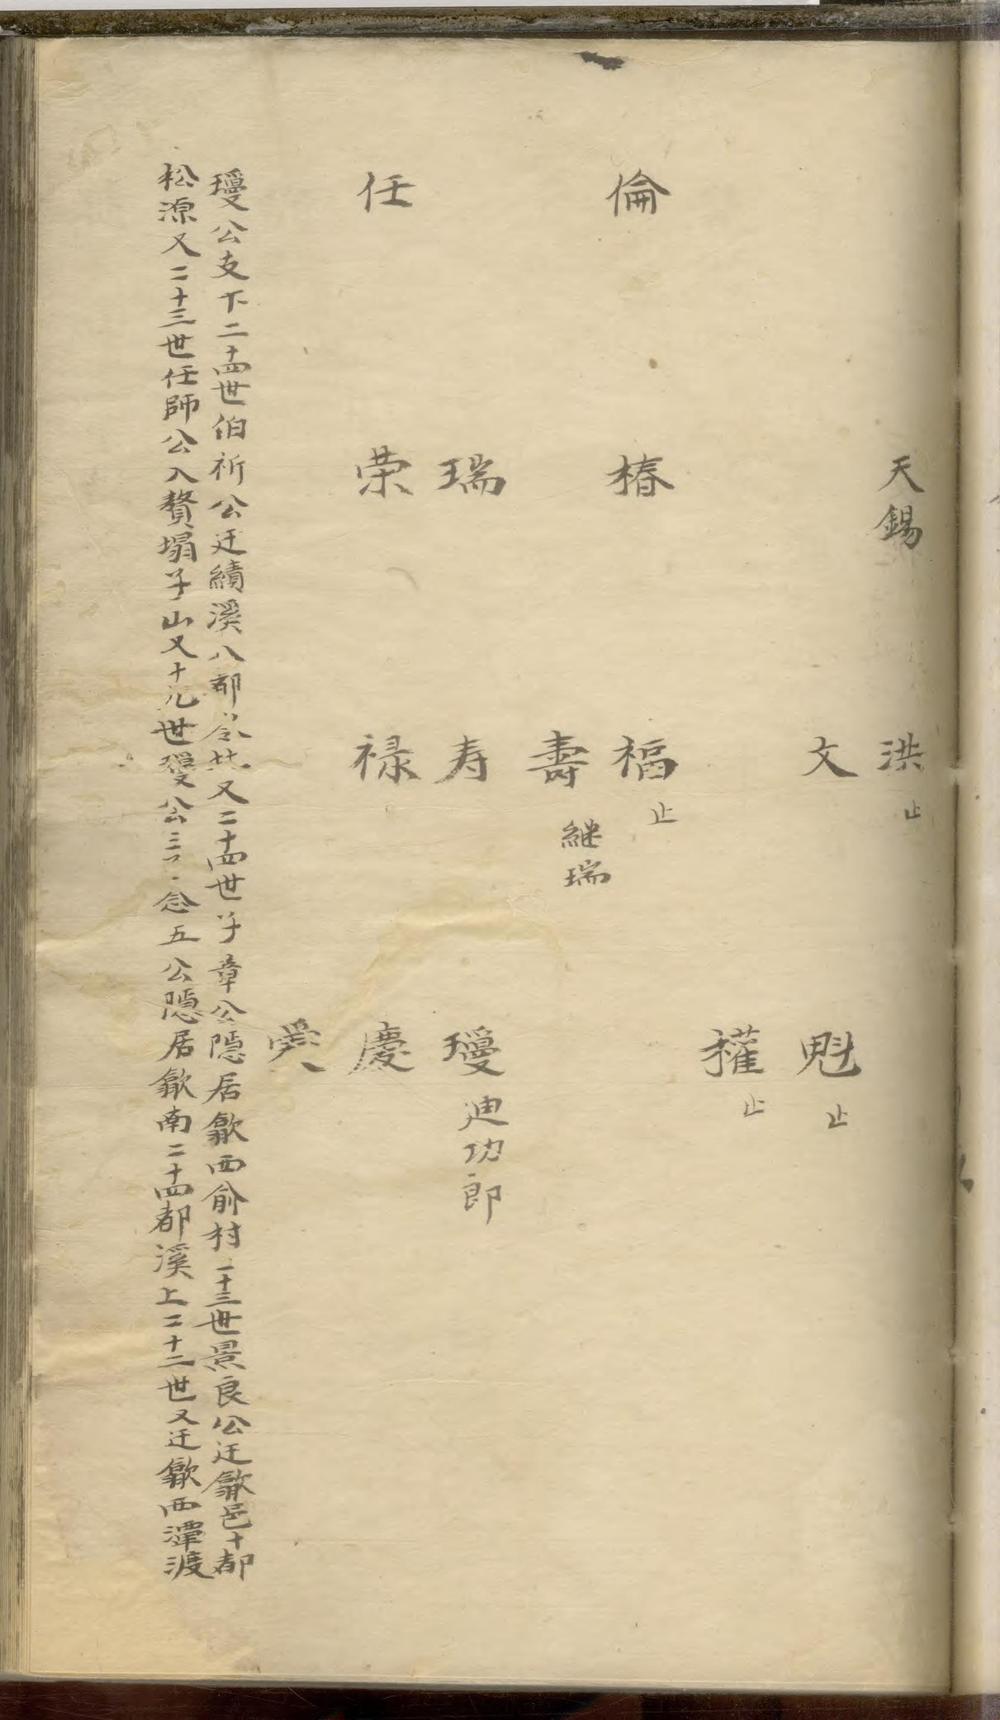 天錫
洪 止
文
魁 止
權 止
倫
椿
福 止
壽 継瑞
瑞
寿
瓊 迪功郎
任
荣
禄
慶
爱
瓊公支下二十四世伯祈公迁績溪八都又二十四世子章公隱居歙西俞村二十三世景良公迁歙邑十都
松源又二十三世任師公入赘塌子山又十九世瓊公念五公隱居歙南二十四都溪上二十二世又迁歙西潭渡